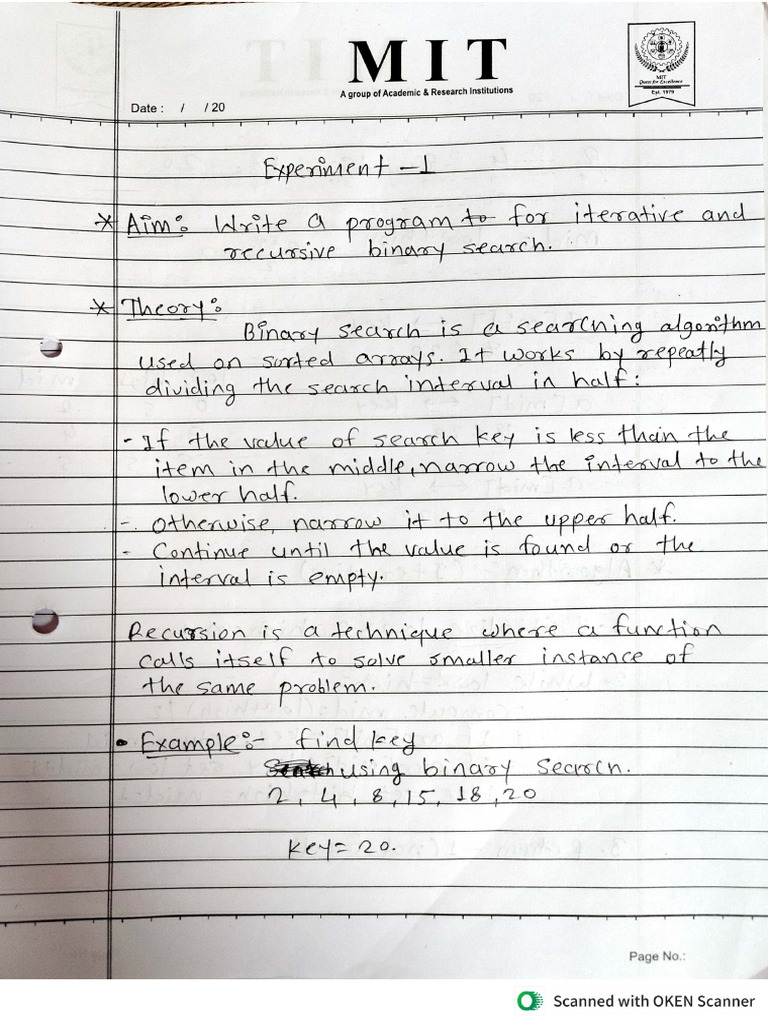 MIT
A group of Academic & Research Institutions
MIT
Quest for Excellence
Est. 1979
Date : / / 20
Experiment - 1
* Aim: Write a program to for iterative and
recursive binary search.
* Theory:
Binary search is a searching algorithm
used on sorted arrays. It works by repeatly
dividing the search interval in half:
- If the value of search key is less than the
item in the middle, narrow the interval to the
lower half.
- Otherwise, narrow it to the upper half.
- Continue until the value is found or the
interval is empty.
Recursion is a technique where a function
calls itself to solve smaller instance of
the same problem.
• Example:- find key
using binary search.
2, 4, 8, 15, 18, 20
key = 20.
Page No.:
Scanned with OKEN Scanner